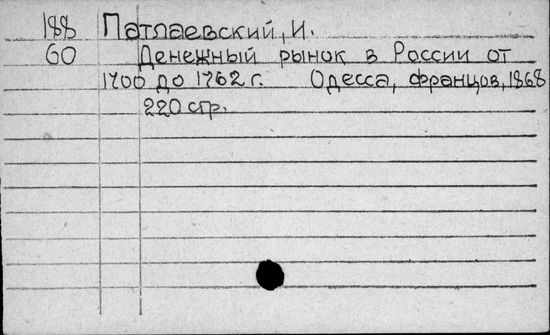 188 Патлаевский, И.
60 Денежный рынок в России от
1700 до 1762 г. Одесса, Францов, 1868
220 стр.